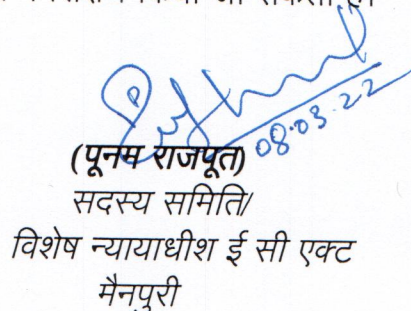 08.03.22
(पूनम राजपूत)
सदस्य समिति/
विशेष न्यायाधीश ई सी एक्ट
मैनपुरी